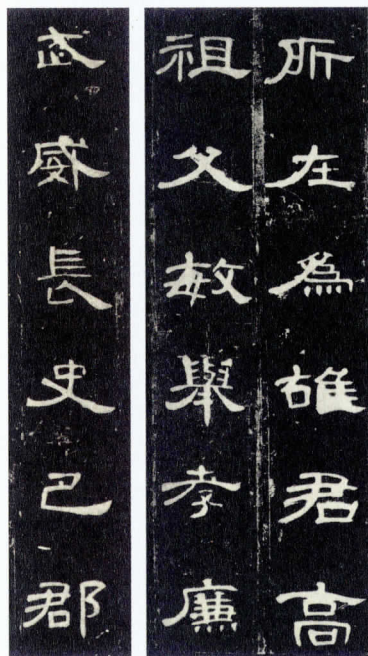 所在為雄君高
祖父敏舉孝廉
武威長史巴郡